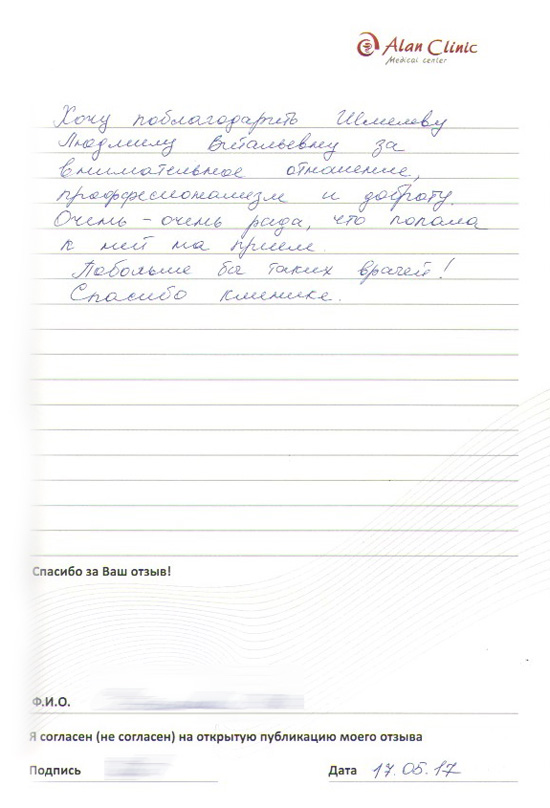 Alan Clinic
Medical center
Хочу поблагодарить Шмелеву
Людмилу Витальевну за
внимательное отношение,
проффесионализм и доброту.
Очень - очень рада, что попала
к ней на прием.
Побольше бы таких врачей!
Спасибо клинике.
Спасибо за Ваш отзыв!
Ф.И.О.
Я согласен (не согласен) на открытую публикацию моего отзыва
Подпись
Дата 17.05.17